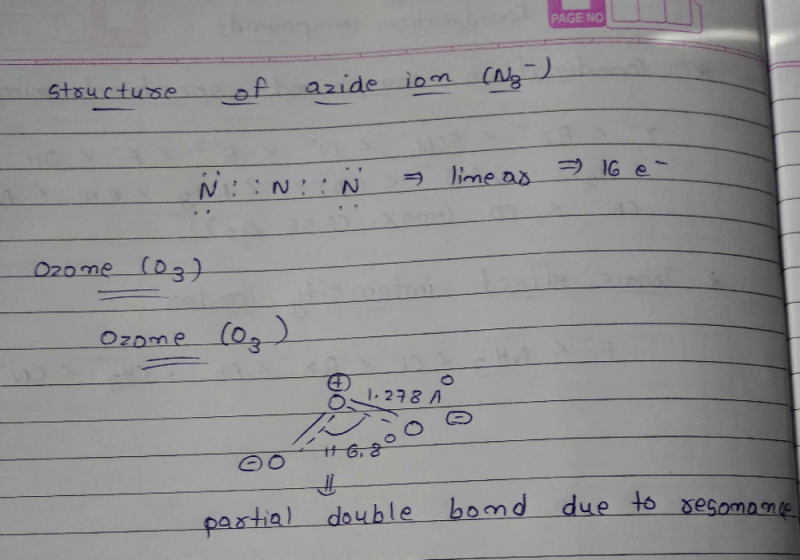 PAGE NO
Structure of azide ion (N3⁻)
:N̈::N::N̈: ⇒ linear ⇒ 16 e⁻
Ozone (O3)
Ozone (O3)
⊕
O 1.278 A°
⊖O 116.8° O ⊖
⇓
partial double bond due to resonance